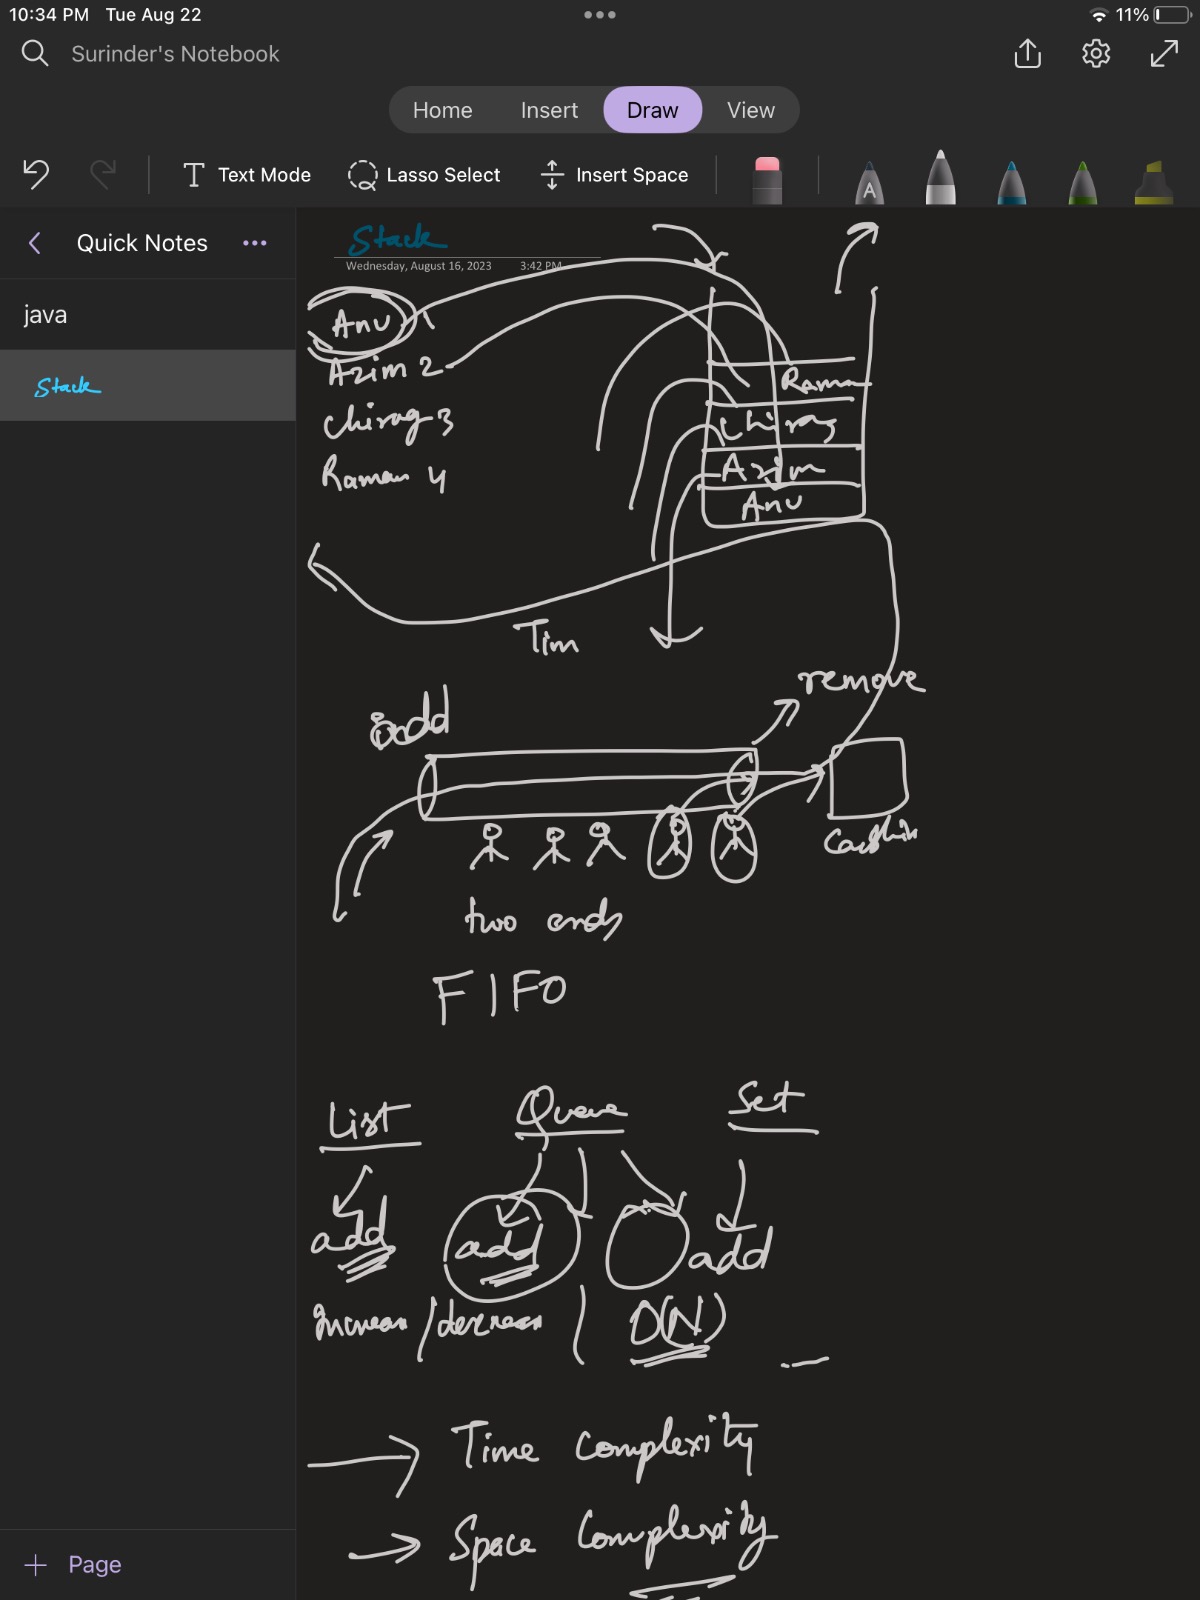 10:34 PM Tue Aug 22
11%
Surinder's Notebook
Home Insert Draw View
Text Mode Lasso Select Insert Space
A
Quick Notes
java
Stack
Page
Stack
Wednesday, August 16, 2023 3:42 PM
Anu 1
Azim 2
Chirag 3
Raman 4
Raman
Chirag
Azim
Anu
Tim
remove
add
two ends
FIFO
List Queue Set
add add add
O(N)
Time Complexity
Space Complexity